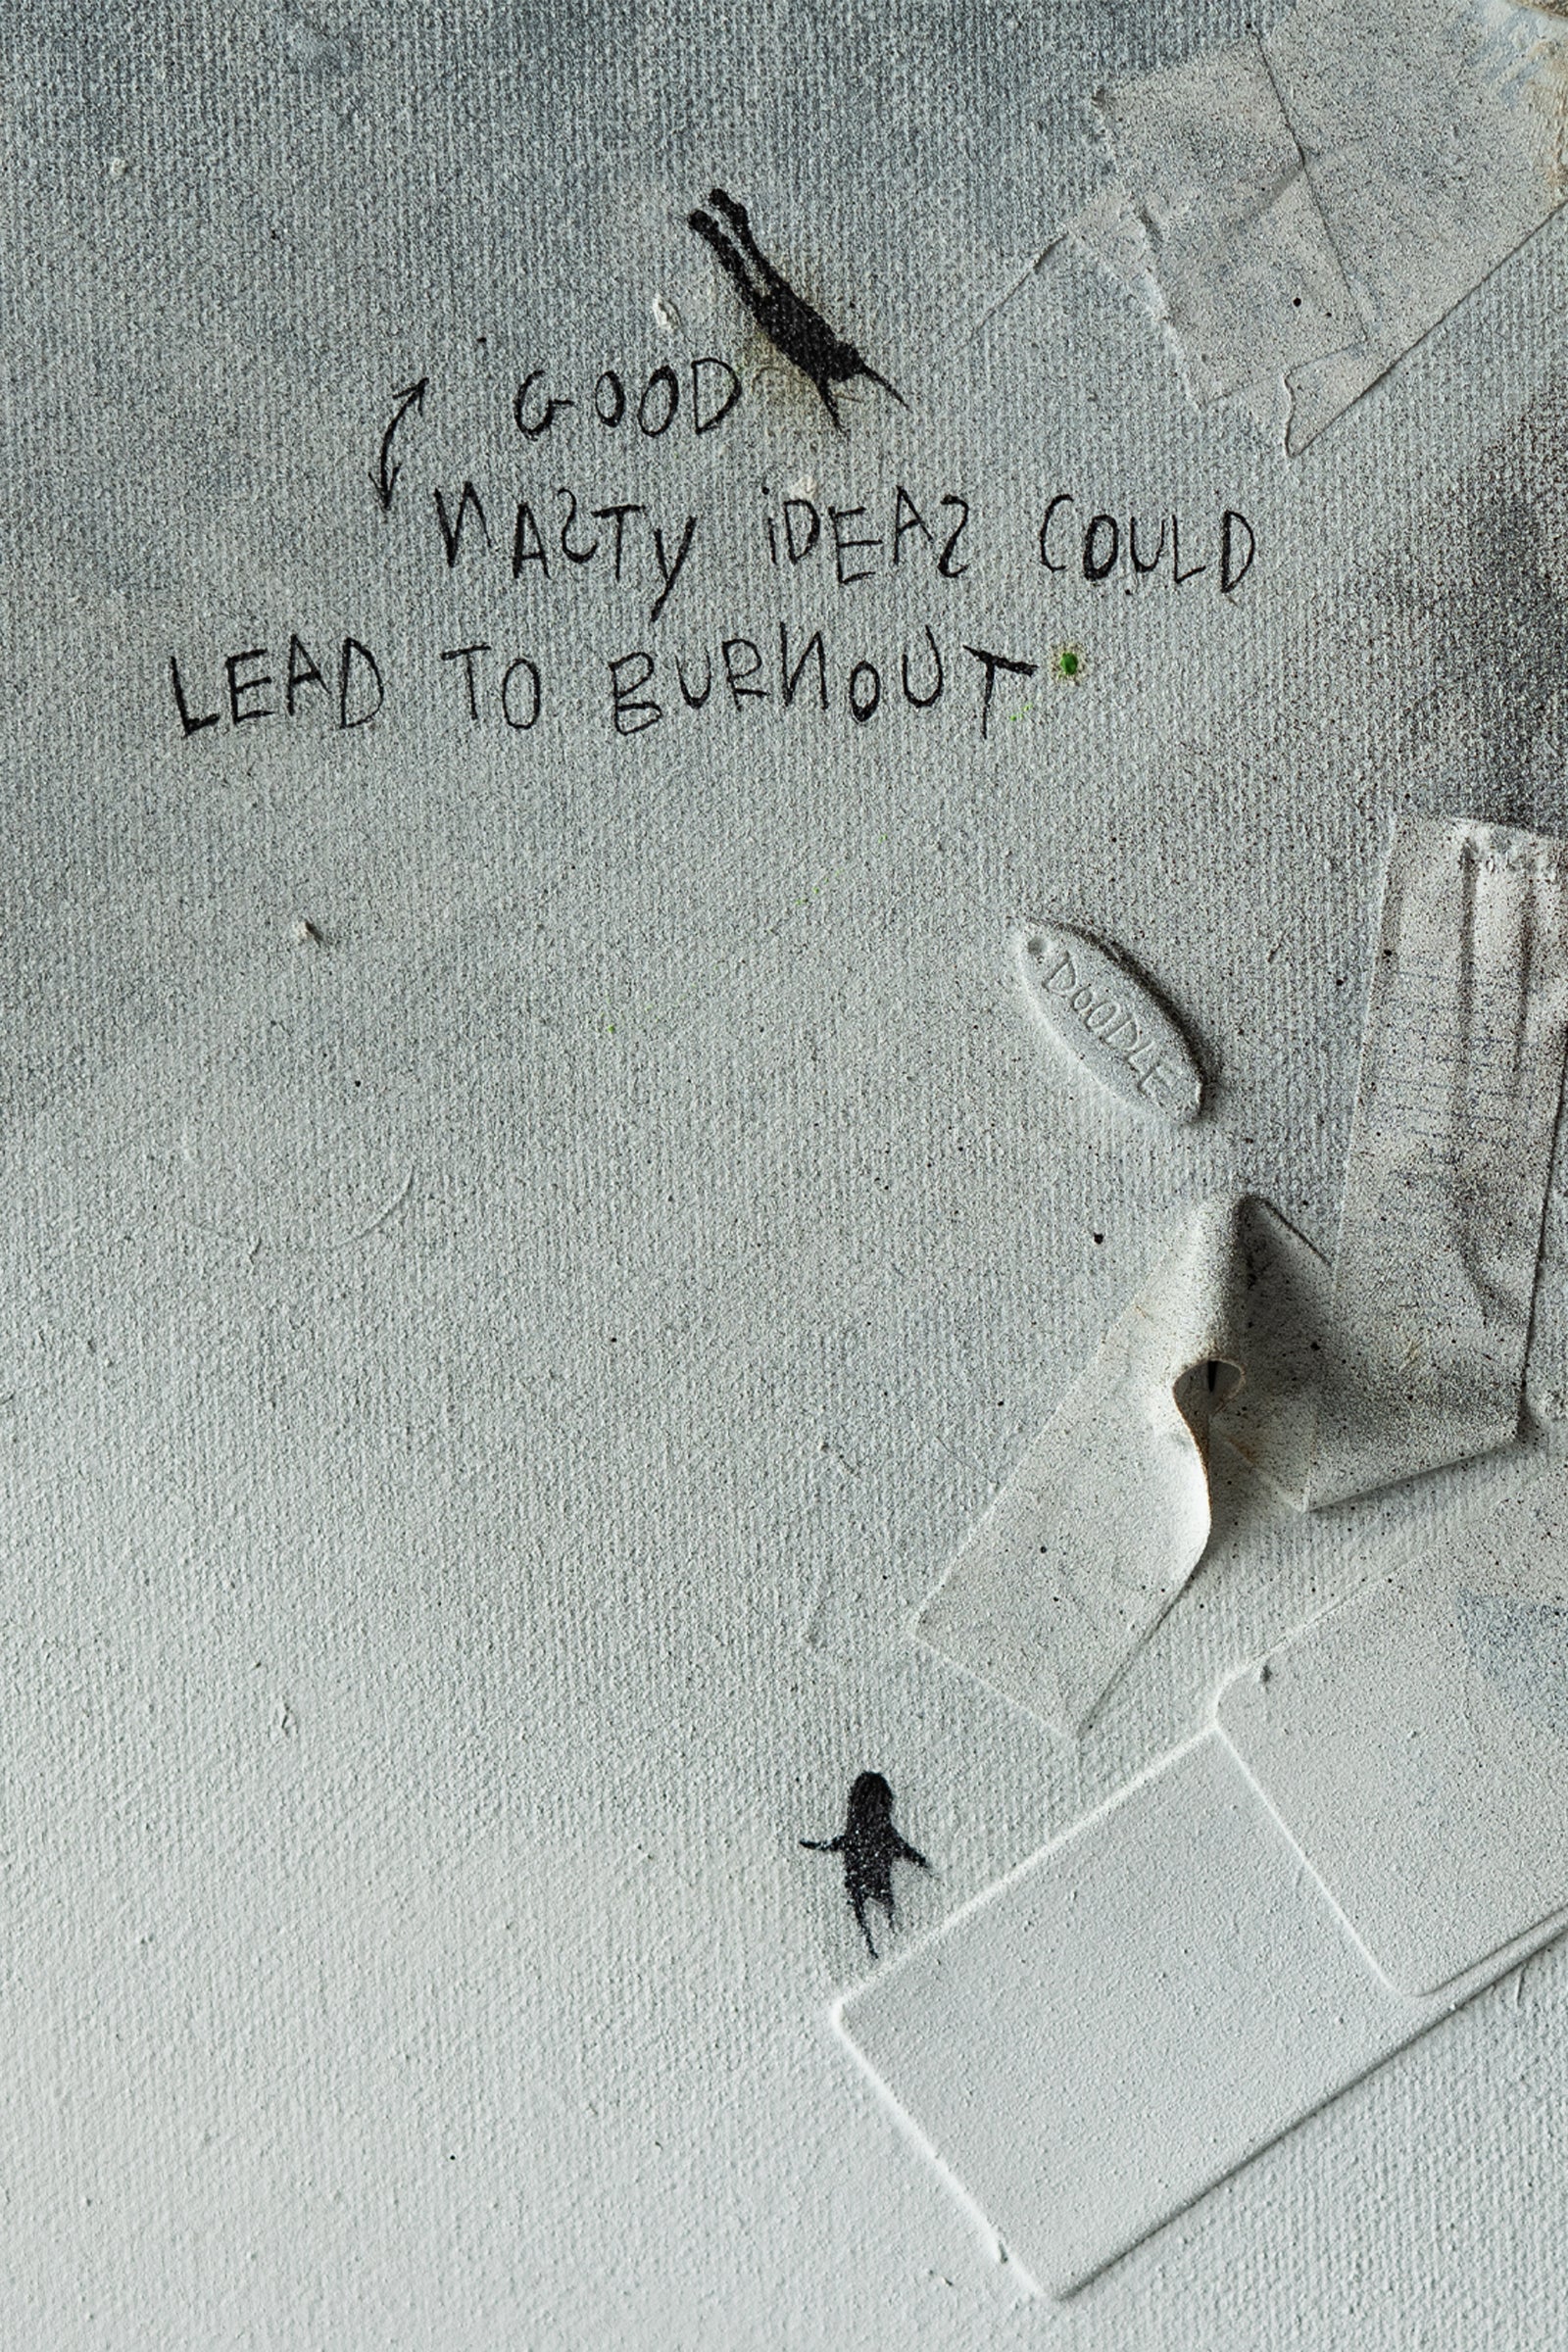 GOOD
NASTY iDEAS COULD
LEAD TO BURNOUT
DOODLE